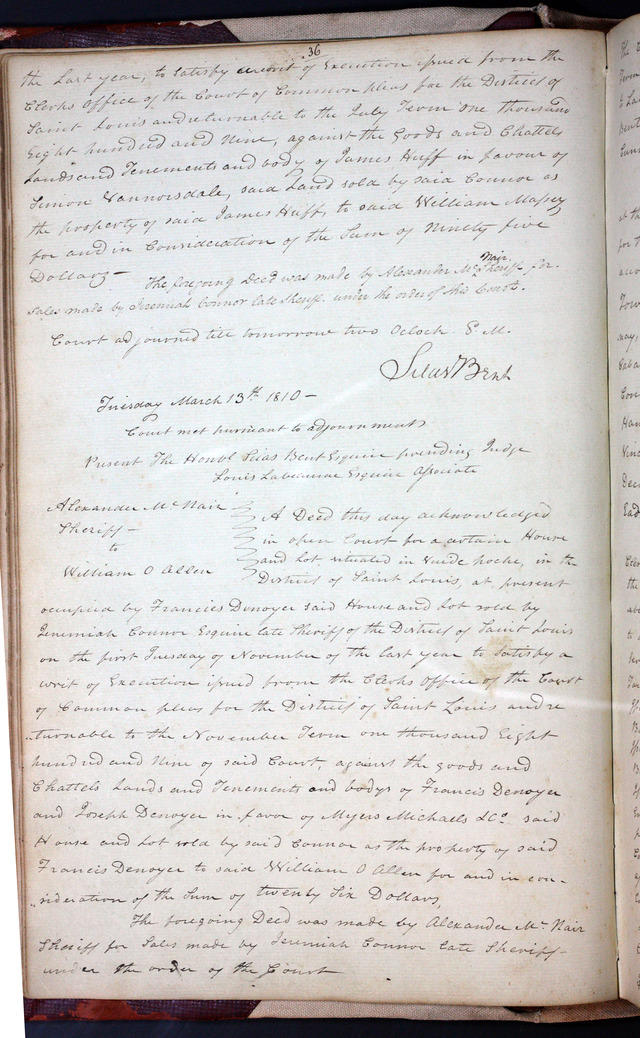 36
the Last year, to Satisfy a writ of Execution issued from the
Clerks Office of the Court of Common pleas for the District of
Saint Louis and returnable to the July Term one thousand
Eight hundred and Nine, against the Goods and Chattels
Lands and Tenements and body of James Huff in favour of
Simon Vannorsdale, said Land sold by said Connor as
the property of said James Huff, to said William Massey
for and in Consideration of the Sum of Ninety five
Dollars —
The foregoing Deed was made by Alexander Mc Nair Sheriff for
Sales made by Jeremiah Connor late Sheriff under the order of this Court.
Court adjourned till tomorrow two Oclock P. M.
Silas Bent
Tuesday March 13th 1810 —
Court met pursuant to adjournment
Present The Honbl Silas Bent Esquire presiding Judge
Louis Labeaume Esquire Associate
Alexander Mc Nair
Sheriff —
to
William O Allen
A Deed this day acknowledged
in open Court for a certain House
and Lot situated in Vuide poche, in the
District of Saint Louis, at present
occupied by Francies Denoyer said House and Lot sold by
Jeremiah Connor Esquire late Sheriff of the District of Saint Louis
on the first Tuesday of November of the last year to satisfy a
writ of Execution issued from the Clerks Office of the Court
of Common pleas for the District of Saint Louis and re
turnable to the November Term one thousand Eight
hundred and Nine of said Court, against the goods and
Chattels Lands and Tenements and bodys of Francis Denoyer
and Joseph Denoyer in favor of Myers Michaels & Co. said
House and Lot sold by said Connor as the property of said
Francis Denoyer to said William O Allen for and in con-
sideration of the Sum of twenty Six Dollars,
The foregoing Deed was made by Alexander Mc Nair
Sheriff for Sales made by Jeremiah Connor late Sheriff
under the order of the Court